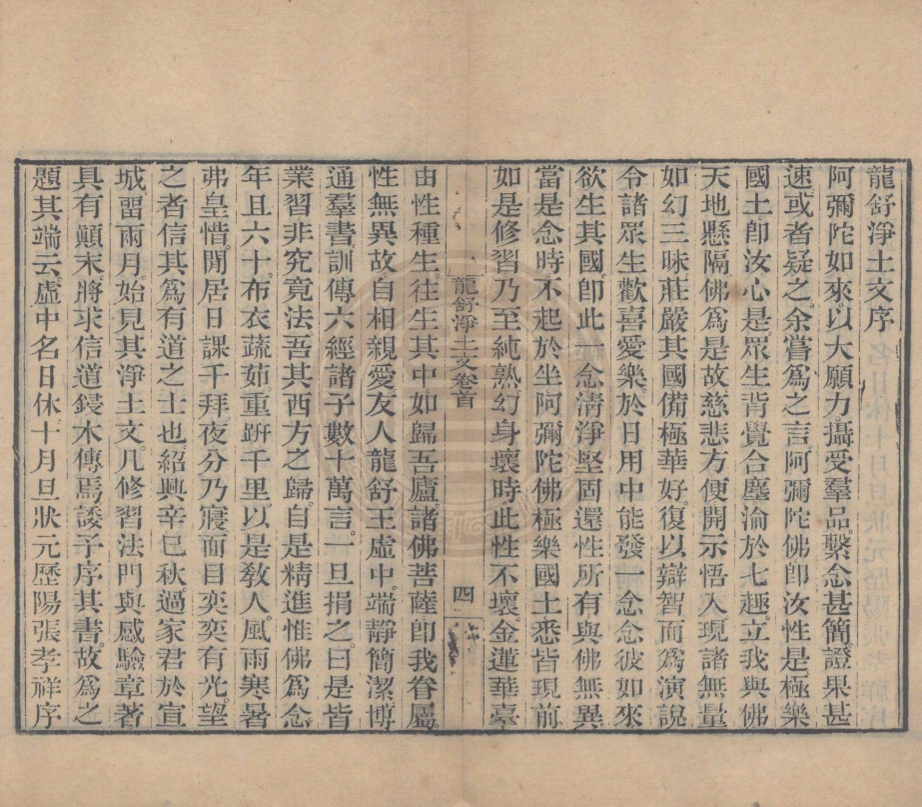 龍舒淨土文序
阿彌陀如來以大願力攝受羣品繫念甚簡證果甚
速或者疑之余嘗爲之言阿彌陀佛卽汝性是極樂
國土卽汝心是眾生背覺合塵淪於七趣立我與佛
天地懸隔佛爲是故慈悲方便開示悟入現諸無量
如幻三昧莊嚴其國備極華好復以辯智而爲演說
令諸眾生歡喜愛樂於日用中能發一念念彼如來
欲生其國卽此一念清淨堅固還性所有與佛無異
當是念時不起於坐阿彌陀佛極樂國土悉皆現前
如是修習乃至純熟幻身壞時此性不壞金蓮華臺
龍舒淨土文卷首
四
由性種生往生其中如歸吾廬諸佛菩薩卽我眷屬
性無異故自相親愛友人龍舒王虛中端靜簡潔博
通羣書訓傳六經諸子數十萬言一旦捐之曰是皆
業習非究竟法吾其西方之歸自是精進惟佛爲念
年且六十布衣蔬茹重趼千里以是敎人風雨寒暑
弗皇惜閒居日課千拜夜分乃寢而目奕奕有光望
之者信其爲有道之士也紹興辛巳秋過家君於宣
城畱兩月始見其淨土文凡修習法門與感驗章著
具有顛末將求信道鋟木傳焉諉予序其書故爲之
題其端云虛中名日休十月旦狀元歷陽張孝祥序